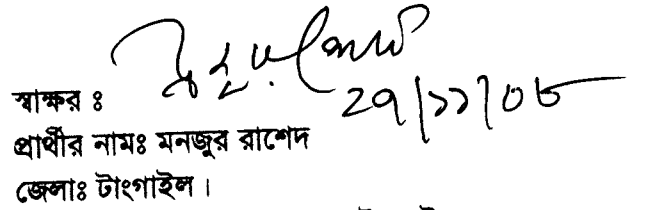 স্বাক্ষর ঃ
২৭/১১/০৮
প্রার্থীর নামঃ মনজুর রাশেদ
জেলাঃ টাংগাইল।